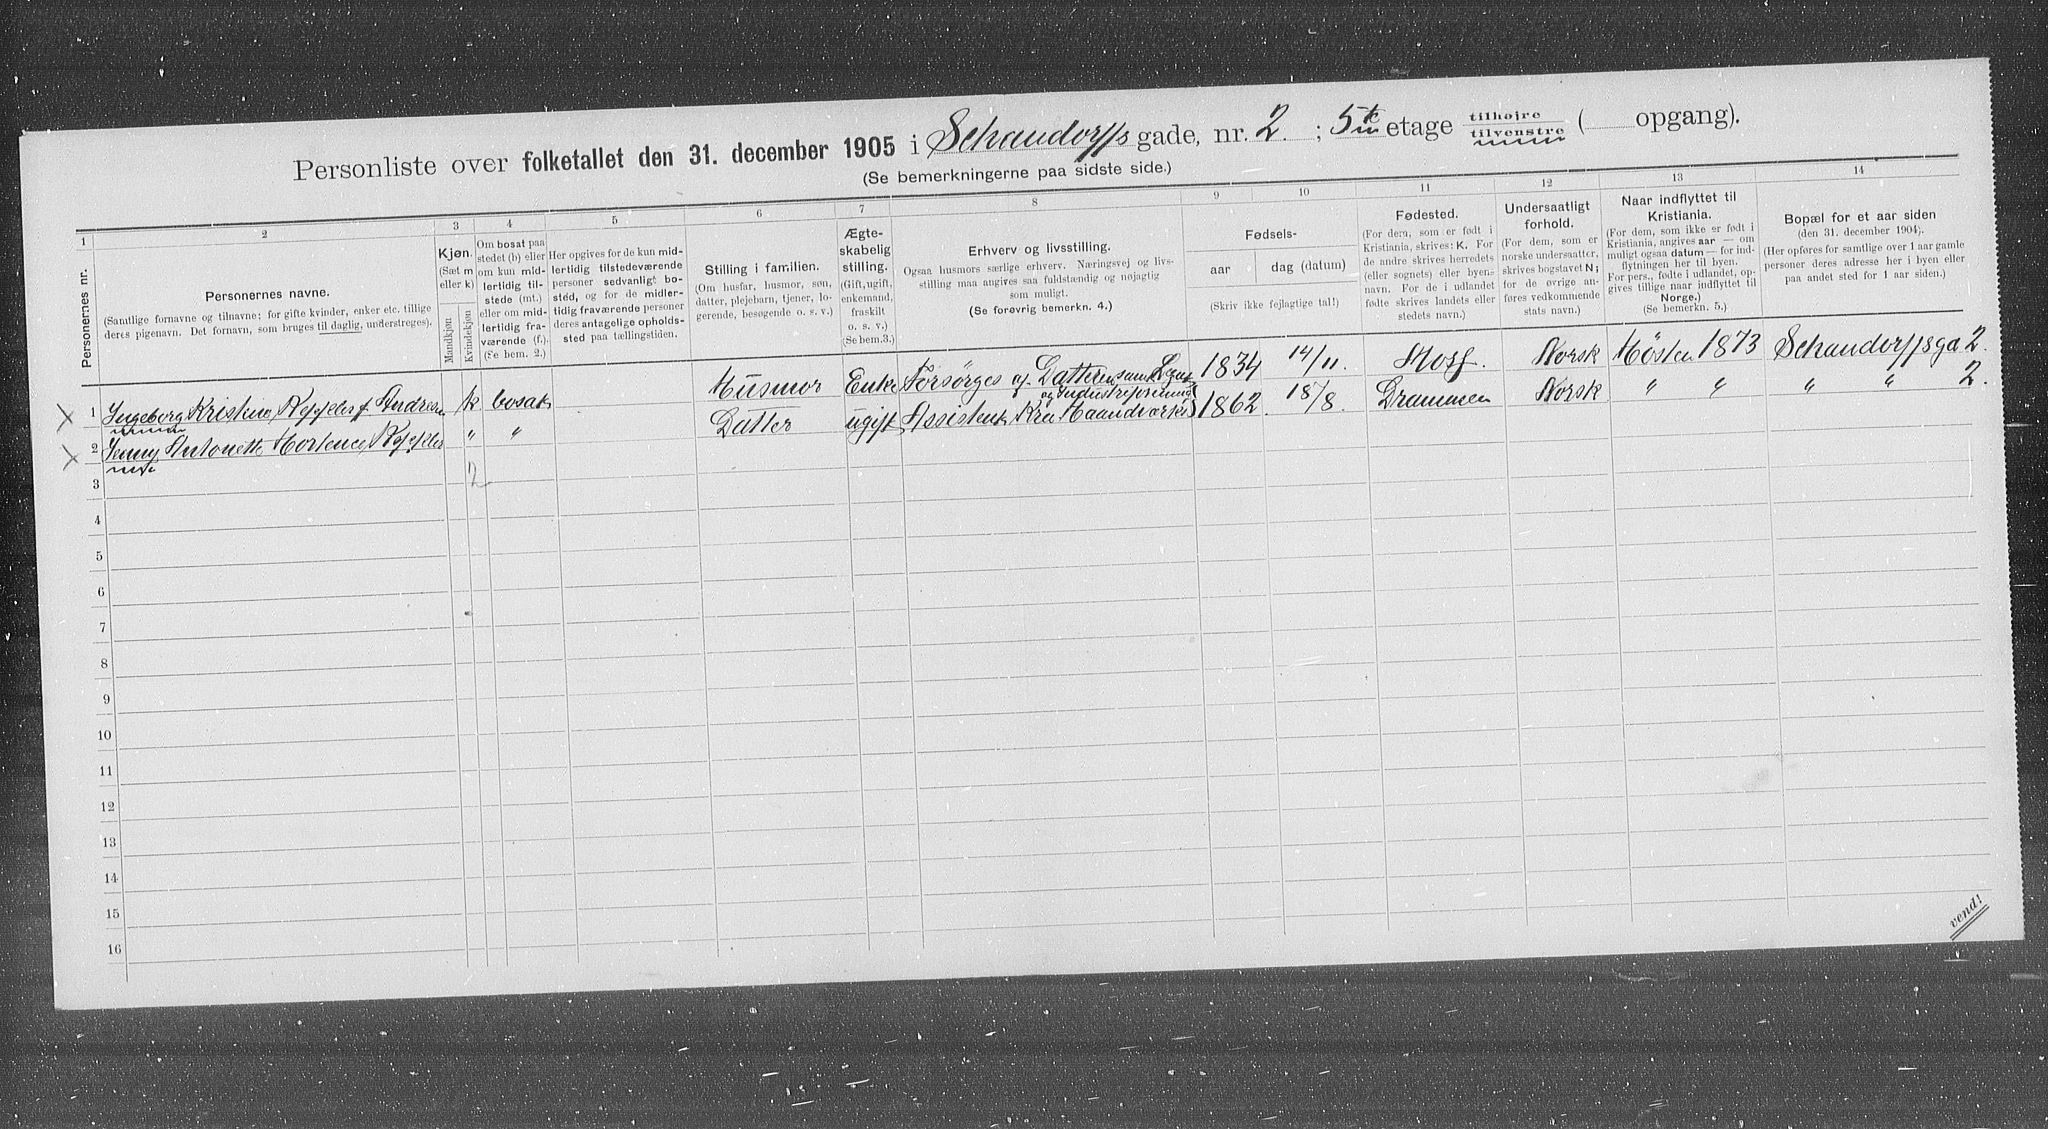 Personliste over folketallet den 31. december 1905 i Schandorffs gade, nr. 2 ; 5te etage tilhøjre tilvenstre ( opgang).
(Se bemerkningerne paa sidste side.)
1 2 3 4 5 6 7 8 9 10 11 12 13 14
Personernes nr.
Personernes navne.
(Samtlige fornavne og tilnavne; for gifte kvinder, enker etc. tillige
deres pigenavn. Det fornavn, som bruges til daglig, understreges).
Kjøn.
(Sæt m
eller k)
Mandkjøn
Kvindekjøn
Om bosat paa
stedet (b) eller
om kun mid-
lertidig til-
stede (mt.)
eller om mid-
lertidig fra-
værende (f.).
(Se bem. 2.)
Her opgives for de kun mid-
lertidig tilstedeværende
personer sedvanligt bo-
sted, og for de midler-
tidig fraværende personer
deres antagelige opholds-
sted paa tællingstiden.
Stilling i familien.
(Om husfar, husmor, søn,
datter, plejebarn, tjener, lo-
gerende, besøgende o. s. v.)
Ægte-
skabelig
stilling.
(Gift, ugift,
enkemand,
fraskilt
o. s. v.)
(Se bem.3.)
Erhverv og livsstilling.
Ogsaa husmors særlige erhverv. Næringsvej og livs-
stilling maa angives saa fuldstændig og nøjagtig
som muligt.
(Se forøvrig bemerkn. 4.)
Fødsels-
aar dag (datum)
(Skriv ikke fejlagtige tal!)
Fødested.
(For dem, som er født i
Kristiania, skrives: K. For
de andre skrives herredets
(eller sognets) eller byen-
navn. For de i udlandet
fødte skrives landets eller
stedets navn.)
Undersaatligt
forhold.
(For dem, som er
norske undersaatter,
skrives bogstavet N;
for de øvrige an-
føres vedkommende
stats navn.)
Naar indflyttet til
Kristiania.
(For dem, som ikke er født i
Kristiania, angives aar — om
muligt ogsaa datum — for ind-
flytningen her til byen.
For pers., fødte i udlandet, op-
gives tillige naar indflyttet til
Norge.)
(Se bemerkn. 5.)
Bopæl for et aar siden
(den 31. december 1904).
(Her opføres for samtlige over 1 aar gamle
personer deres adresse her i byen eller
paa andet sted for 1 aar siden.)
1 Ingeborg Kristine f Andresen k bosat Husmor Enke Forsørges af Datteren samt Legat 1834 14/11. Moss. Norsk Høsten 1873 Schandorffsga 2.
2 Jenny Antonette Hortence " " Datter ugift Assistent Kra Haandverks og Industriforening 1862. 18/8. Drammen Norsk " " " " 2.
2
3
4
5
6
7
8
9
10
11
12
13
14
15
16
vend!